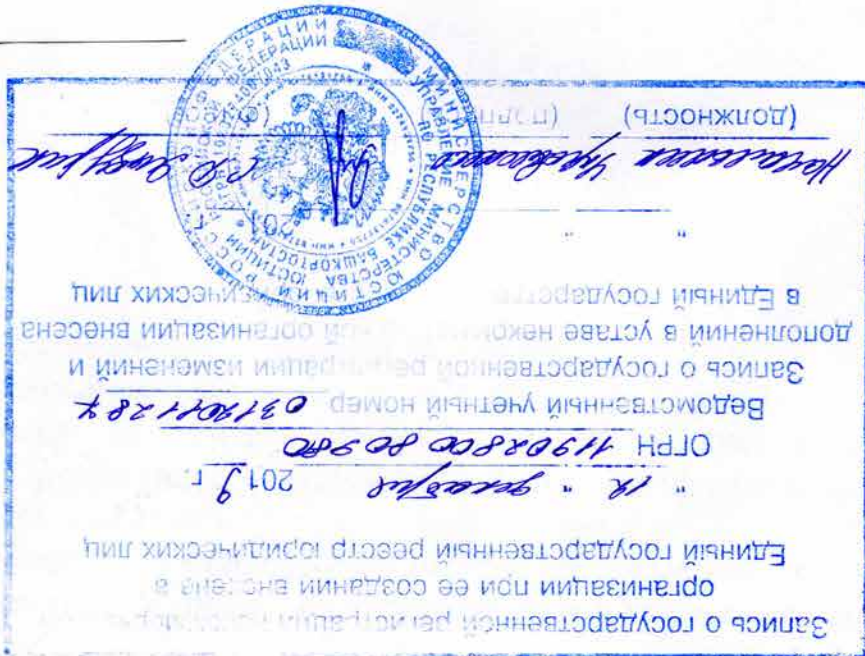 Запись о государственной регистрации
организации при ее создании внесена в
Единый государственный реестр юридических лиц
" 12 " декабря 2019 г.
ОГРН 1190280080980
Ведомственный учетный номер 0312011287
Запись о государственной регистрации изменений и
дополнений в уставе некоммерческой организации внесена
в Единый государств юридических лиц
" " 201
Начальник Управления
(должность) (подпись)
МИНИСТЕРСТВО ЮСТИЦИИ РОССИЙСКОЙ ФЕДЕРАЦИИ
УПРАВЛЕНИЕ МИНИСТЕРСТВА ЮСТИЦИИ РОССИЙСКОЙ ФЕДЕРАЦИИ
ПО РЕСПУБЛИКЕ БАШКОРТОСТАН